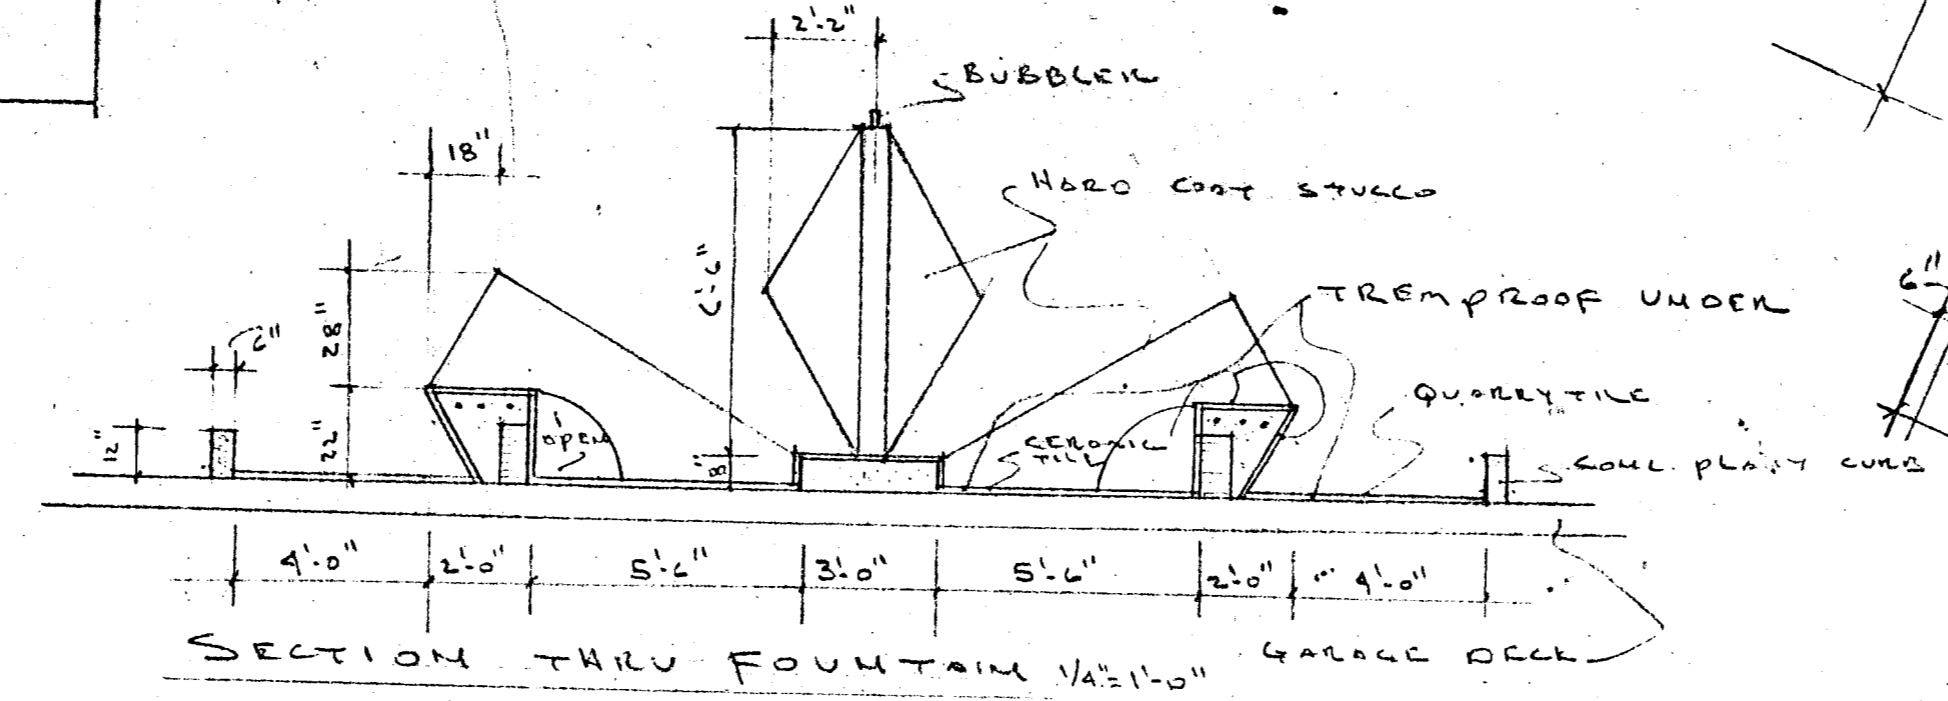 2'-2"
BUBBLER
18"
HARD COAT STUCCO
6'-6"
TREMPROOF UNDER
6"
6"
28"
QUARRY TILE
12"
22"
OPEN
8"
CERAMIC
TILE
CONC. PLANT CURB
4'-0" 2'-0" 5'-6" 3'-0" 5'-6" 2'-0" 4'-0"
SECTION THRU FOUNTAIN 1/4"=1'-0" GARAGE DECK